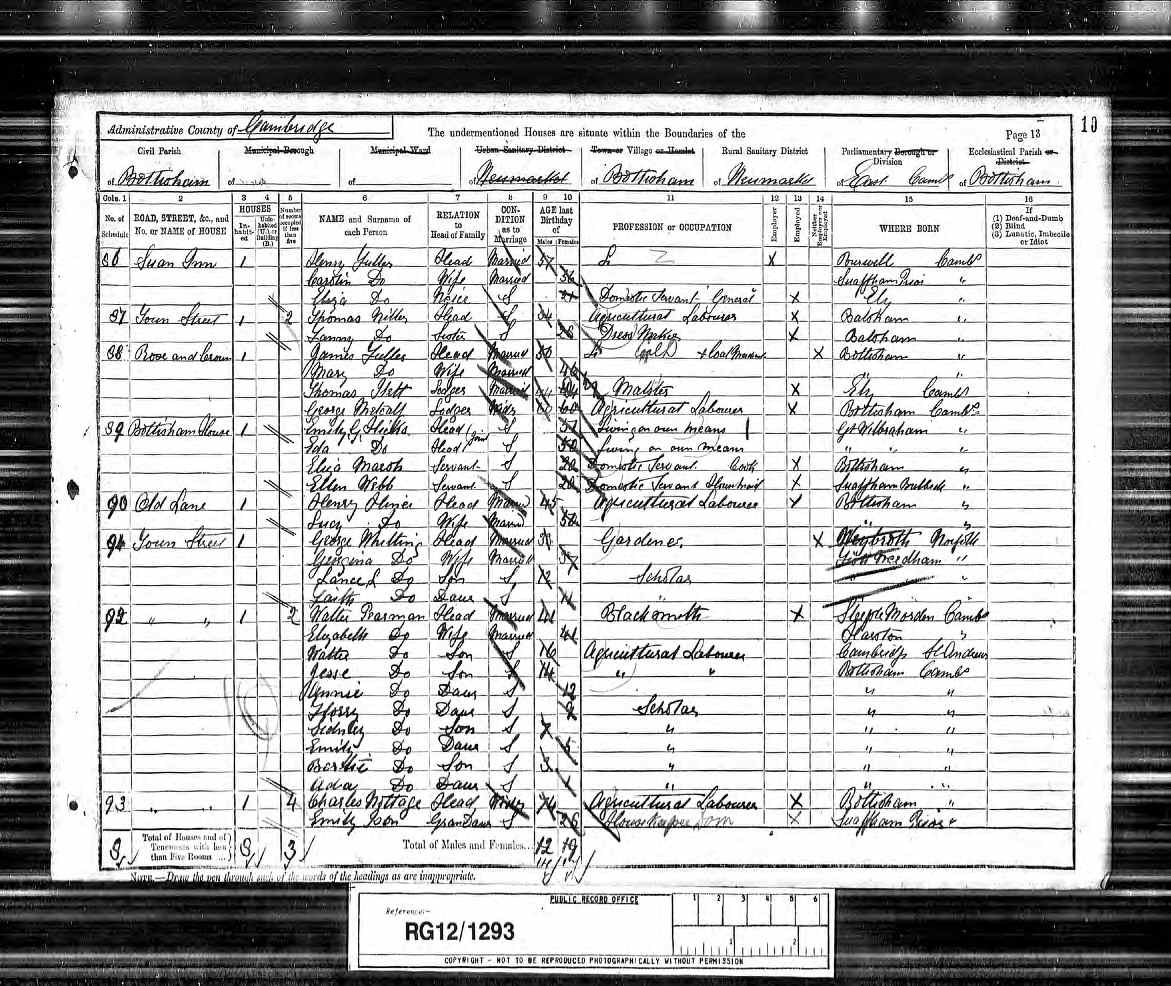 Administrative County of Cambridge
The undermentioned Houses are situate within the Boundaries of the
Page 13
Civil Parish
Municipal Borough
Municipal Ward
Urban Sanitary District
Town or Village or Hamlet
Rural Sanitary District
Parliamentary Borough or Division
Ecclesiastical Parish or District
of Bottisham
of
of
of Newmarket
of Bottisham
of Newmarket
of East Camb
of Bottisham
Cols. 1 2 3 4 5 6 7 8 9 10 11 12 13 14 15 16
No. of Schedule
ROAD, STREET, &c., and No. or NAME of HOUSE
HOUSES
Inhabited
Uninhabited (U.) or Building (B.)
Number of rooms occupied if less than five
NAME and Surname of each Person
RELATION to Head of Family
CONDITION as to Marriage
AGE last Birthday of
Males Females
PROFESSION or OCCUPATION
Employer
Employed
Neither Employer nor Employed
WHERE BORN
If (1) Deaf-and-Dumb (2) Blind (3) Lunatic, Imbecile or Idiot
86 Swan Inn 1 Henry Fuller Head Married 57 X Burwell Cambs
Do Wife Married 56 Swaffham Prior "
Eliza Do S 21 Domestic Servant General X Ely "
87 Town Street 1 2 Thomas Head S Agricultural Labourer X Balsham "
Fanny Do Sister S Dress Maker X Balsham "
88 Rose and Crown 1 James Fuller Head Married X Bottisham "
Mary Do Wife Married " "
Thomas Lodger Married Malster X Ely Cambs
George Metcalf Lodger 60 Agricultural Labourer X Bottisham Cambs
89 Bottisham House 1 Emily G. Hicks Head Joint S Living on own means Gt Wilbraham "
Ida Do Head S Living on own means " " "
Eliza Marsh Servant S Domestic Servant Cook X Bottisham "
Ellen Webb Servant S 20 Domestic Servant X Swaffham Bulbeck "
90 Old Lane 1 Henry Head Married 45 Agricultural Labourer X Bottisham "
Lucy Do Wife Married " "
91 Town Street 1 George Whitting Head Married Gardener X Weybroth Norfolk
Georgina Do Wife Married 37 Needham "
Do Son S 12 Scholar " "
Do Daur S 11
92 " " 1 2 Walter Pearman Head Married 41 Blacksmith X Steeple Morden Cambs
Elizabeth Do Wife Married 41 Harston "
Walter Do Son S 16 Agricultural Labourer Cambridge St Andrews
Jesse Do Son S 14 " " Bottisham Cambs
Annie Do Daur S 12 " "
Do Daur S 9 Scholar " "
Sidney Do Son S 7 " " "
Emily Do Daur S 5 " " "
Bertie Do Son S 3 " " "
Ada Do Daur S 1 " "
93 " " 1 4 Charles Nottage Head Widr 74 Agricultural Labourer X Bottisham "
Emily Ison GranDaur S 26 Housekeeper Dom X Swaffham Prior "
8 Total of Houses and of Tenements with less than Five Rooms ... 8 3 Total of Males and Females... 12 19
NOTE.—Draw the pen through such of the words of the headings as are inappropriate.
PUBLIC RECORD OFFICE
Reference:-
RG12/1293
1 2 3 4 5 6
1 2
COPYRIGHT - NOT TO BE REPRODUCED PHOTOGRAPHICALLY WITHOUT PERMISSION